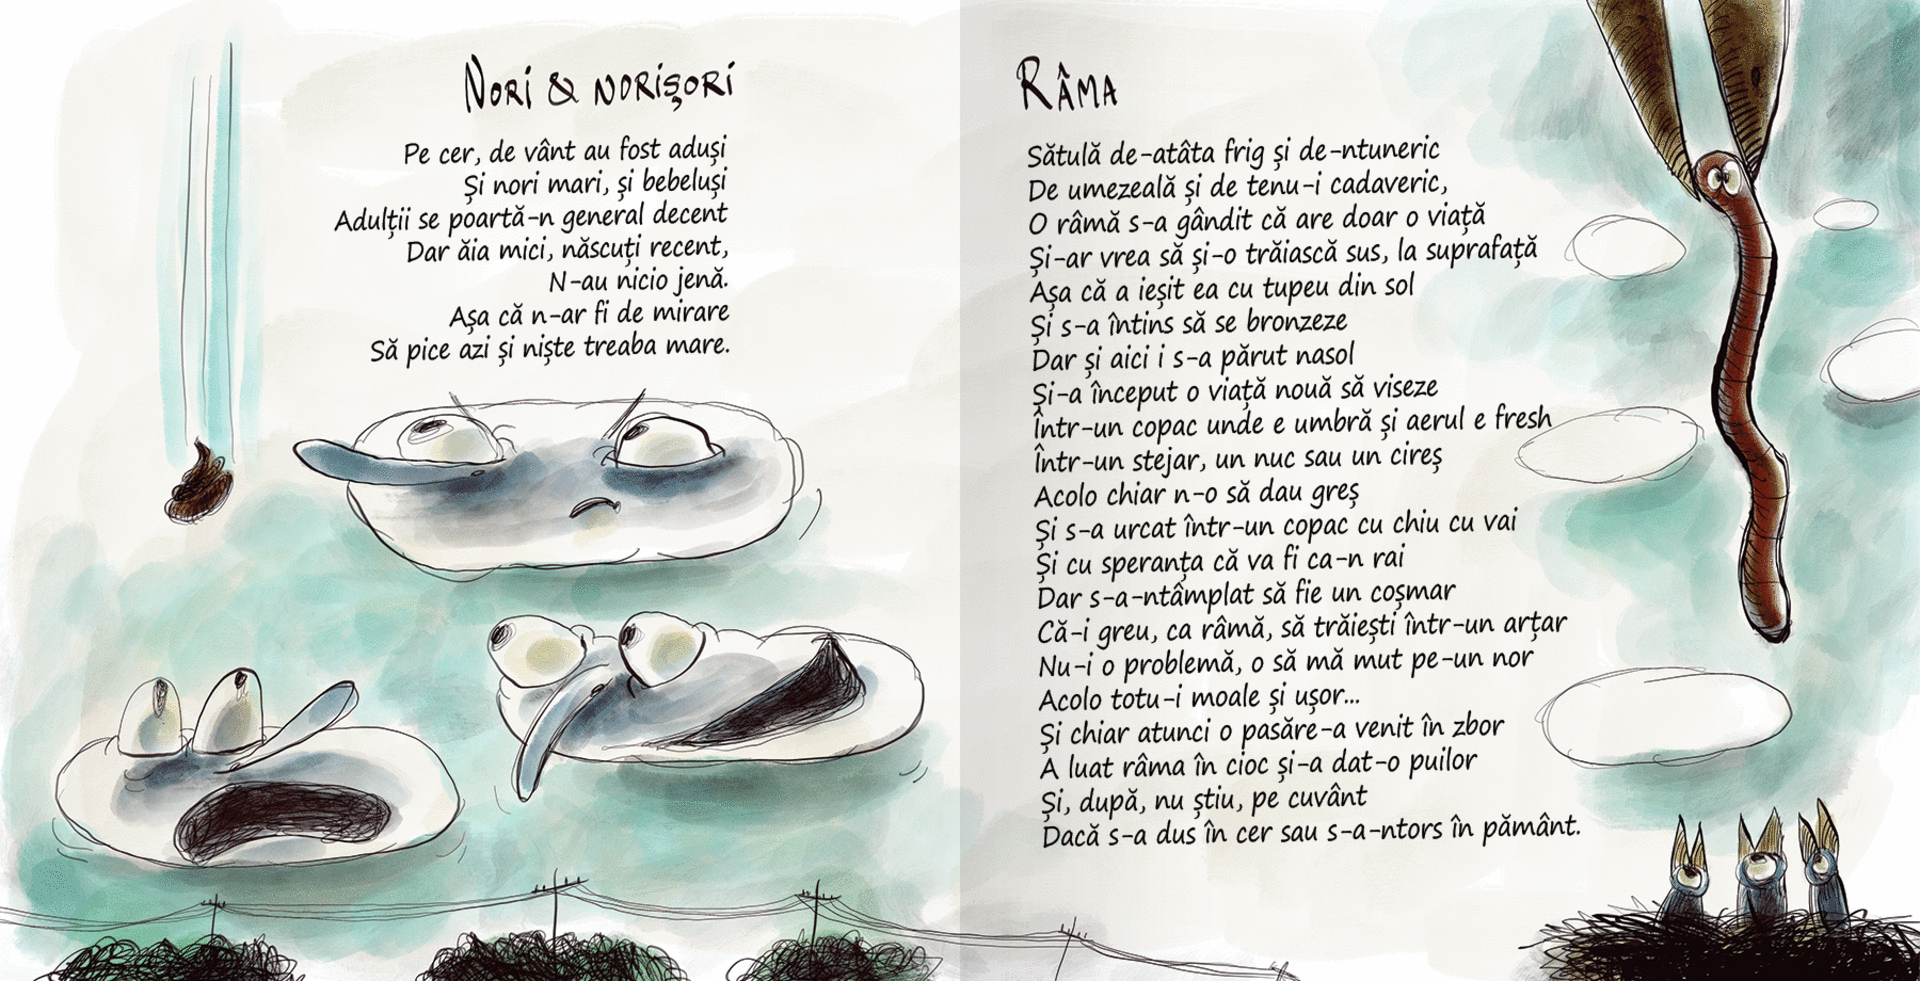 Nori & norișori
Pe cer, de vânt au fost aduși
Și nori mari, și bebeluși
Adulții se poartă-n general decent
Dar ăia mici, născuți recent,
N-au nicio jenă.
Așa că n-ar fi de mirare
Să pice azi și niște treaba mare.
Râma
Sătulă de-atâta frig și de-ntuneric
De umezeală și de tenu-i cadaveric,
O râmă s-a gândit că are doar o viață
Și-ar vrea să și-o trăiască sus, la suprafață
Așa că a ieșit ea cu tupeu din sol
Și s-a întins să se bronzeze
Dar și aici i s-a părut nasol
Și-a început o viață nouă să viseze
Într-un copac unde e umbră și aerul e fresh
Într-un stejar, un nuc sau un cireș
Acolo chiar n-o să dau greș
Și s-a urcat într-un copac cu chiu cu vai
Și cu speranța că va fi ca-n rai
Dar s-a-ntâmplat să fie un coșmar
Că-i greu, ca râmă, să trăiești într-un arțar
Nu-i o problemă, o să mă mut pe-un nor
Acolo totu-i moale și ușor...
Și chiar atunci o pasăre-a venit în zbor
A luat râma în cioc și-a dat-o puilor
Și, după, nu știu, pe cuvânt
Dacă s-a dus în cer sau s-a-ntors în pământ.